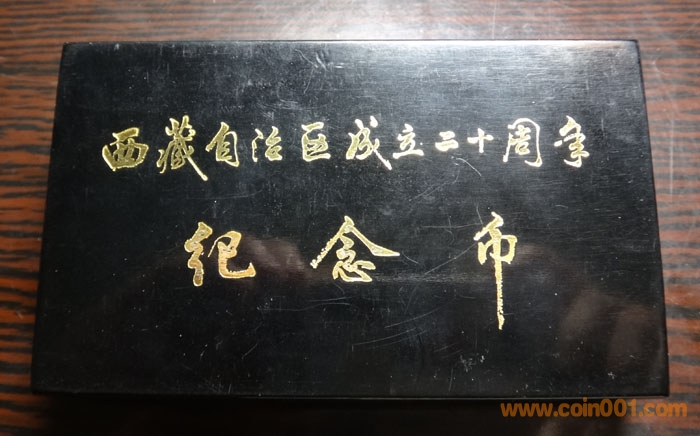 西藏自治区成立二十周年
纪念币
www.coin001.com